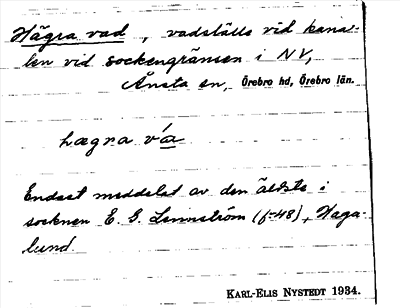 Hägra vad, vadställe vid kana-
len vid sockengränsen i NV,
Ånsta sn, Örebro hd, Örebro län.
hægra va
Endast meddelat av den äldste i
socknen E. G. Lennström (f-48), Haga-
lund.
KARL-ELIS NYSTEDT 1934.